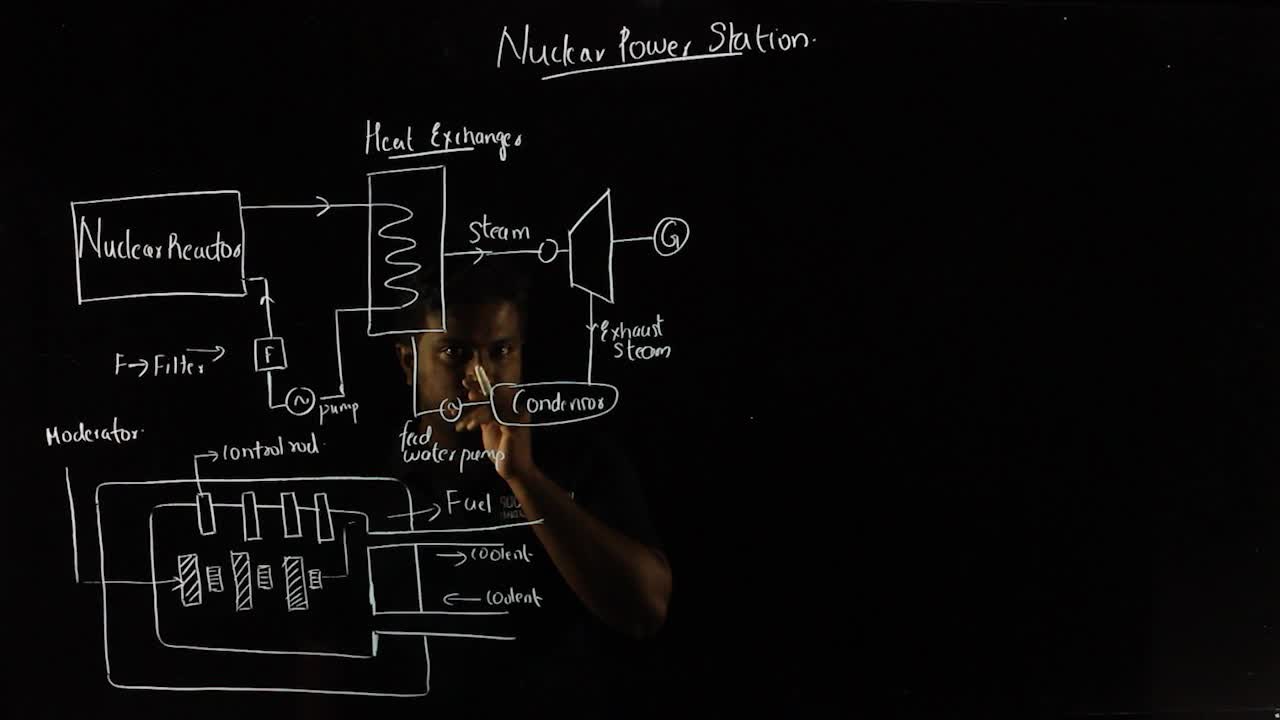 Nuclear Power Station.
Heat Exchanger
Nuclear Reactor
steam
G
Exhaust
steam
F
F→Filter
pump
Condensor
feed
water pump
Moderator.
control rod
Fuel
coolent
coolent